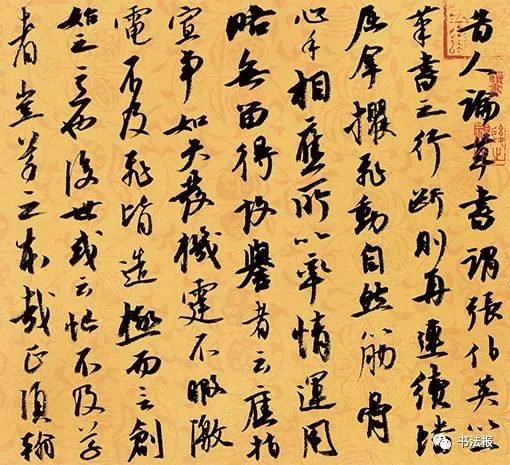 昔人論草書謂張伯英以
筆書之行断則再連續蟠
屈拏攫飛動自然筋骨
心手相應所以率情運用
略無留礙故譽者云應指
宣事如矢發機霆不暇激
電不及飛皆造極而言創
始之意也後世或云忙不及草
者豈草之本哉正須翰
书法报